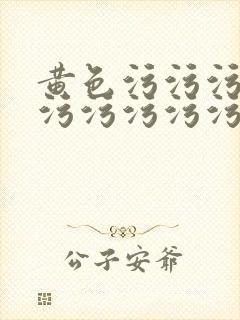 黄色污污污
污污污污污
公子安爷